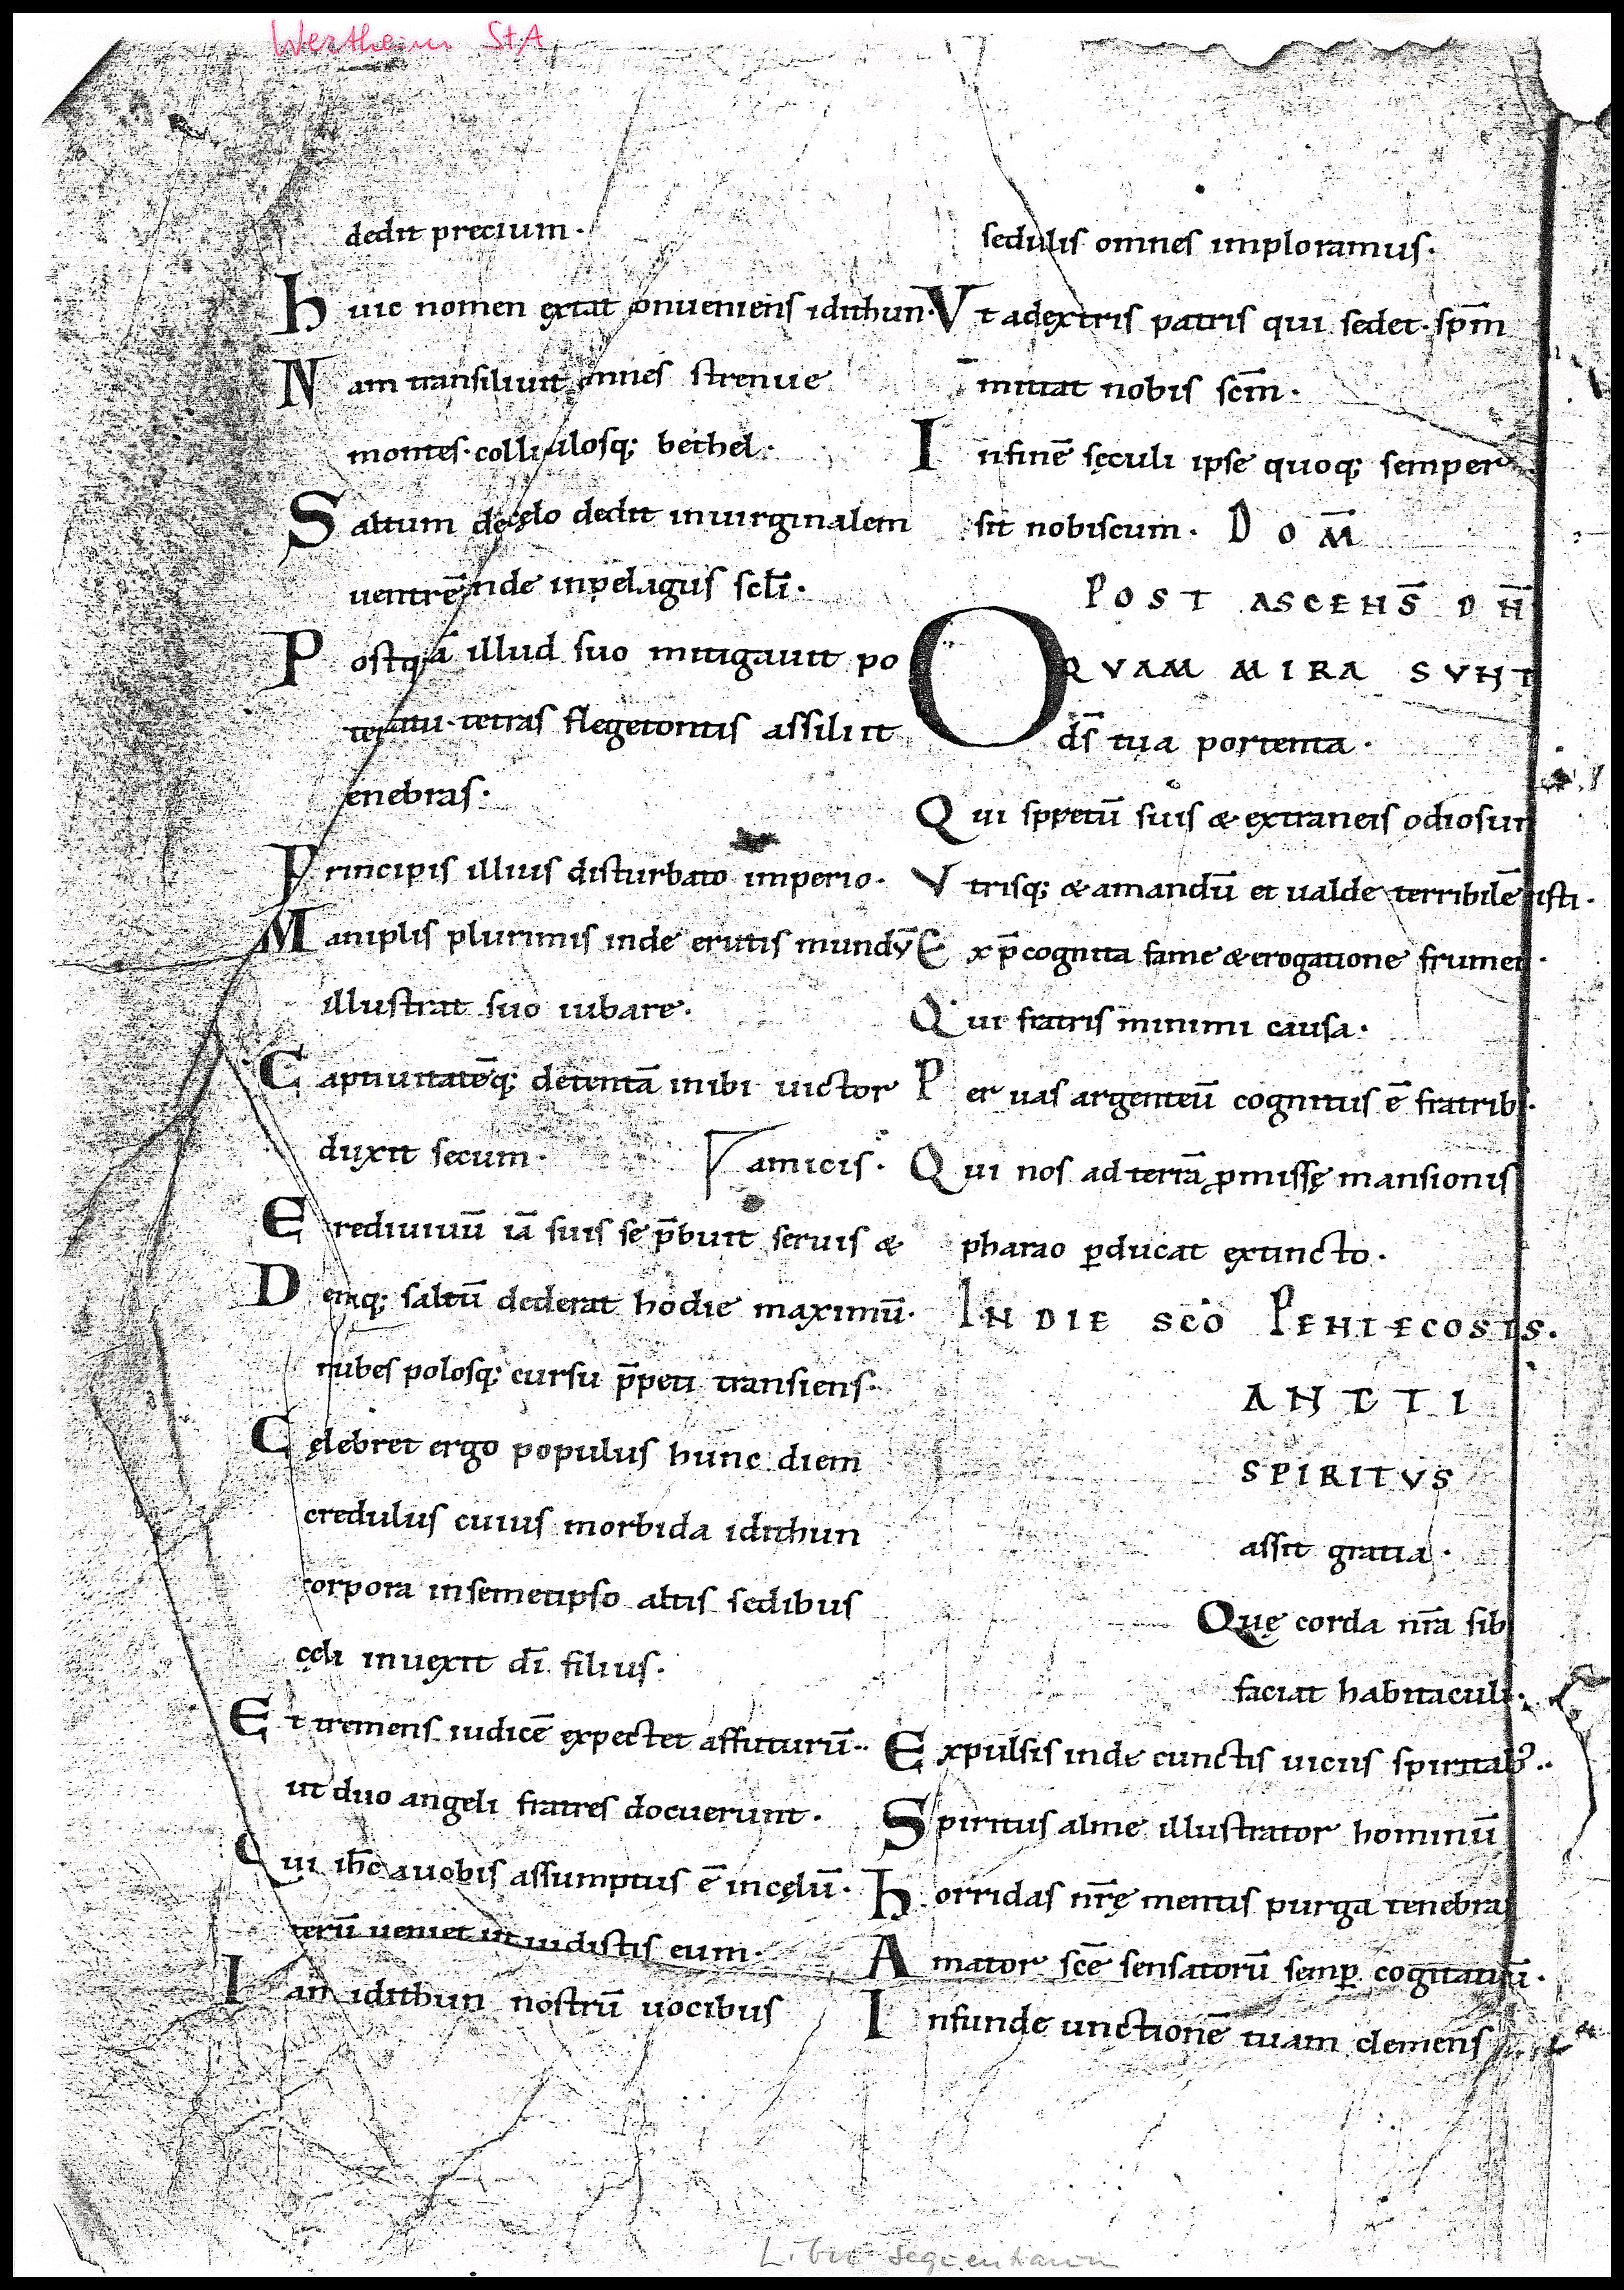 Wertheim StA
dedit precium.
Huic nomen extat onueniens idithun.
Nam transiliuit omnes strenue
montes. colliculosq; bethel.
Saltum de cęlo dedit inuirginalem
uentrē inde inpelagus scl̄i.
Postquā illud suo mitigauit po
tentatu. tetras flegetontis assiliit
enebras.
Principis illius disturbato imperio.
Maniplis plurimis inde erutis mundv̄
illustrat suo iubare.
Captiuitatēq; detentā inibi uictor
duxit secum. amicis.
Erediuiuū iā suis se p̄buit seruis &
Deniq; saltū dederat hodie maximū.
nubes polosq; cursu p̄peti transiens.
Cęlebret ergo populus hunc diem
credulus cuius morbida idithun
corpora insemetipso altis sedibus
cęli inuexit dī filius.
Et tremens iudicē expectet affuturū..
ut duo angeli fratres docuerunt.
Qui ih̄c auobis assumptus ē incęlū.
terū ueniet ut uidistis eum.
Iam idithun nostrū uocibus
sedulis omnes imploramus.
Vt adextris patris qui sedet. sp̄m
mittat nobis sc̄m.
Infinē sęculi ipse quoq; semper
sit nobiscum. DOM̄
POST ASCENS̄ DN̄
OQVAM MIRA SVNT
ds̄ tua portenta.
Qui spretū suis & extraneis odiosum
Vtrisq; & amandū et ualde terribilē isti.
Ex p̄cognita fame & erogatione frumen.
Qui fratris minimi causa.
Per uas argenteū cognitus ē fratrib.
Qui nos ad terrā ꝓmissę mansionis
pharao ꝑducat extincto.
IN DIE SCO PENTECOSTES.
ANCTI
SPIRITVS
assit gratia.
Quę corda nr̄a sib
faciat habitaculi.
Expulsis inde cunctis uiciis spiritalib᾽..
Spiritus alme illustrator hominū
Horridas nr̄ę mentis purga tenebra
Amator sc̄e sensatorū semꝑ cogitatuū.
Infunde unctionē tuam clemens
Liber sequentiarum